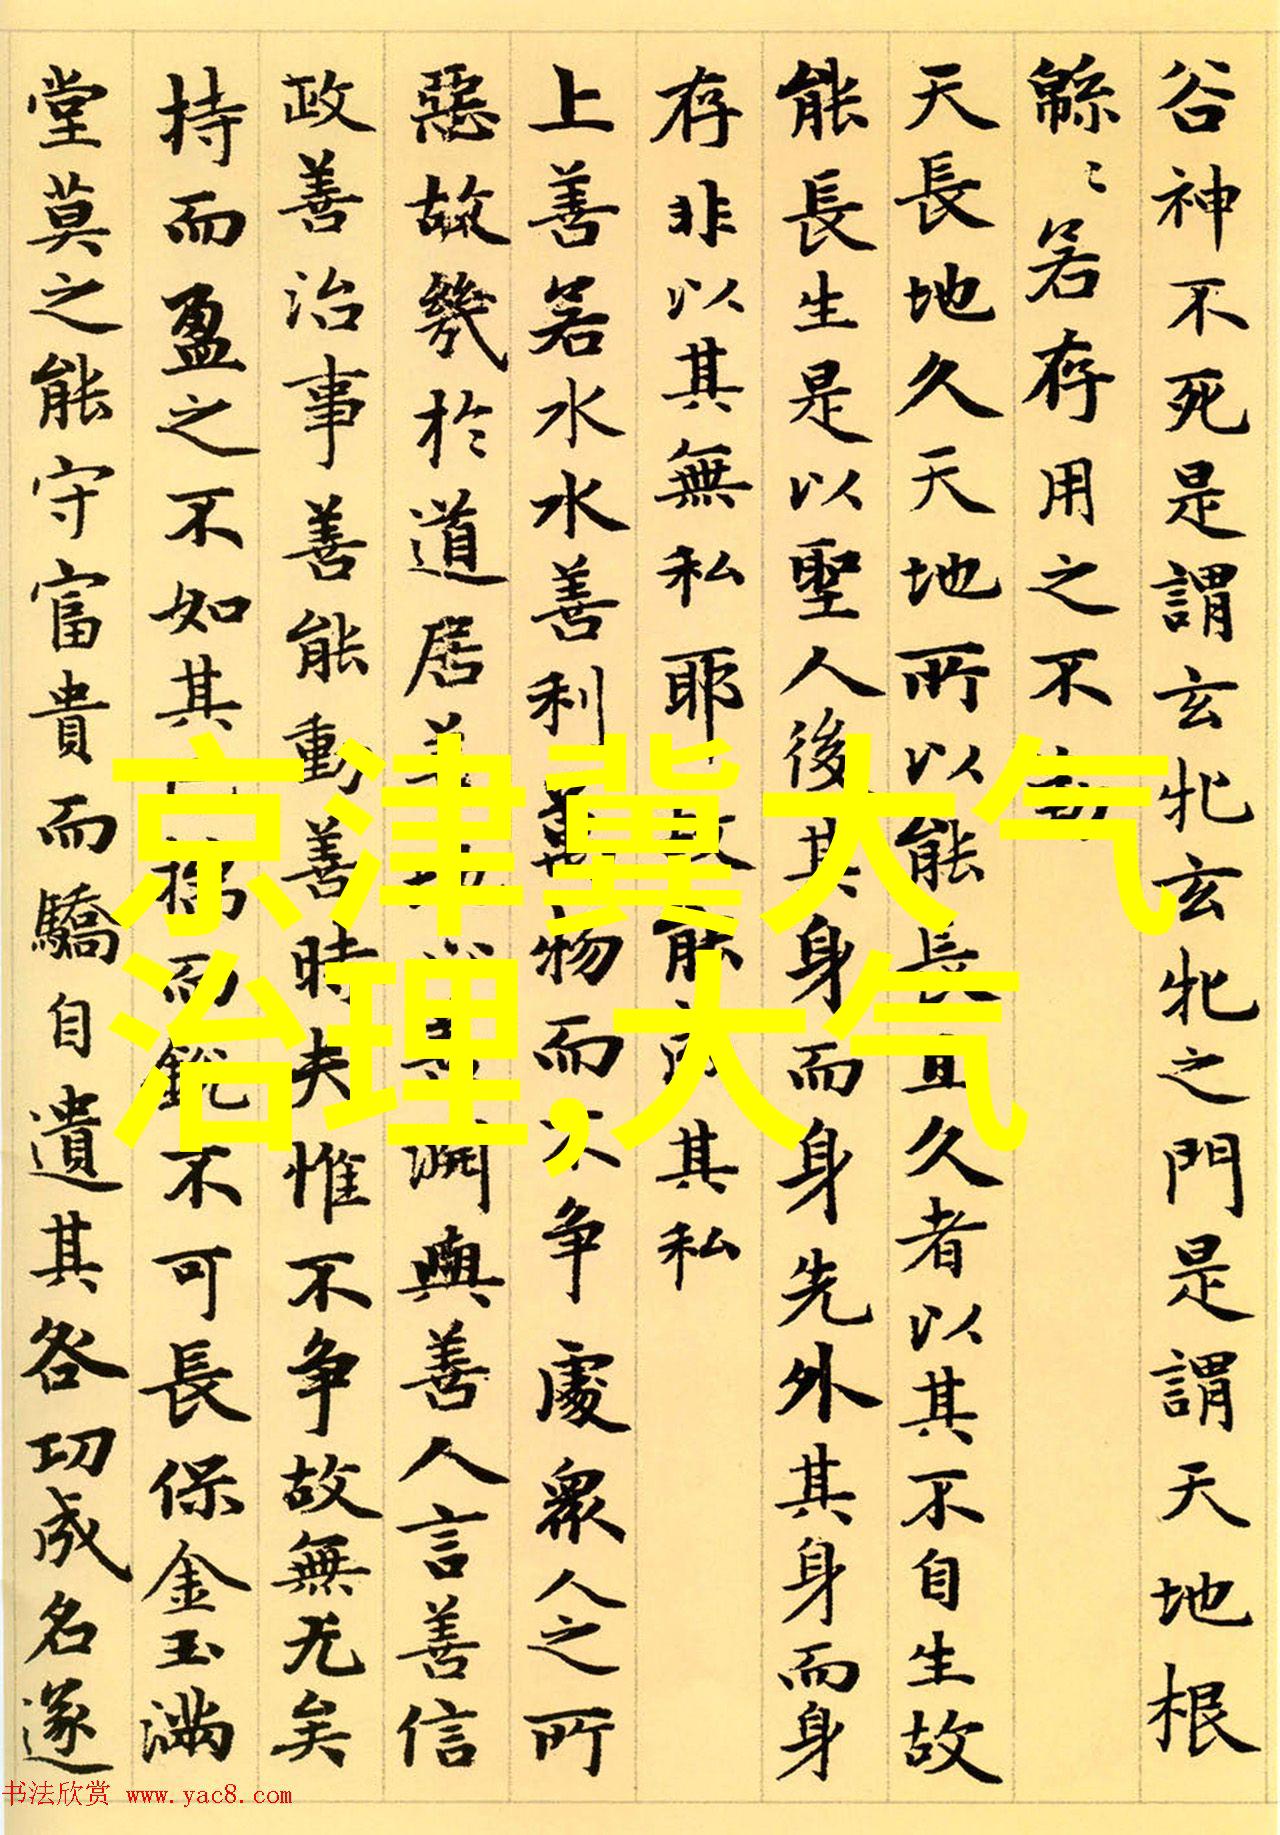 谷神不死是謂玄牝玄牝之門是謂天地根
緜〻若存用之不
天長地久天地所以能長且久者以其不自生故
能長生是以聖人後其身而身先外其身而身
存非以其無私耶故能成其私
上善若水水善利萬物而不争處衆人之所
惡故幾於道居善地心善淵與善人言善信
政善治事善能動善時夫惟不争故無尤矣
持而盈之不如其已揣而銳不可長保金玉滿
堂莫之能守富貴而驕自遺其咎功成名遂
京津冀大气
治理,大气
书法欣赏 www.yac8.com